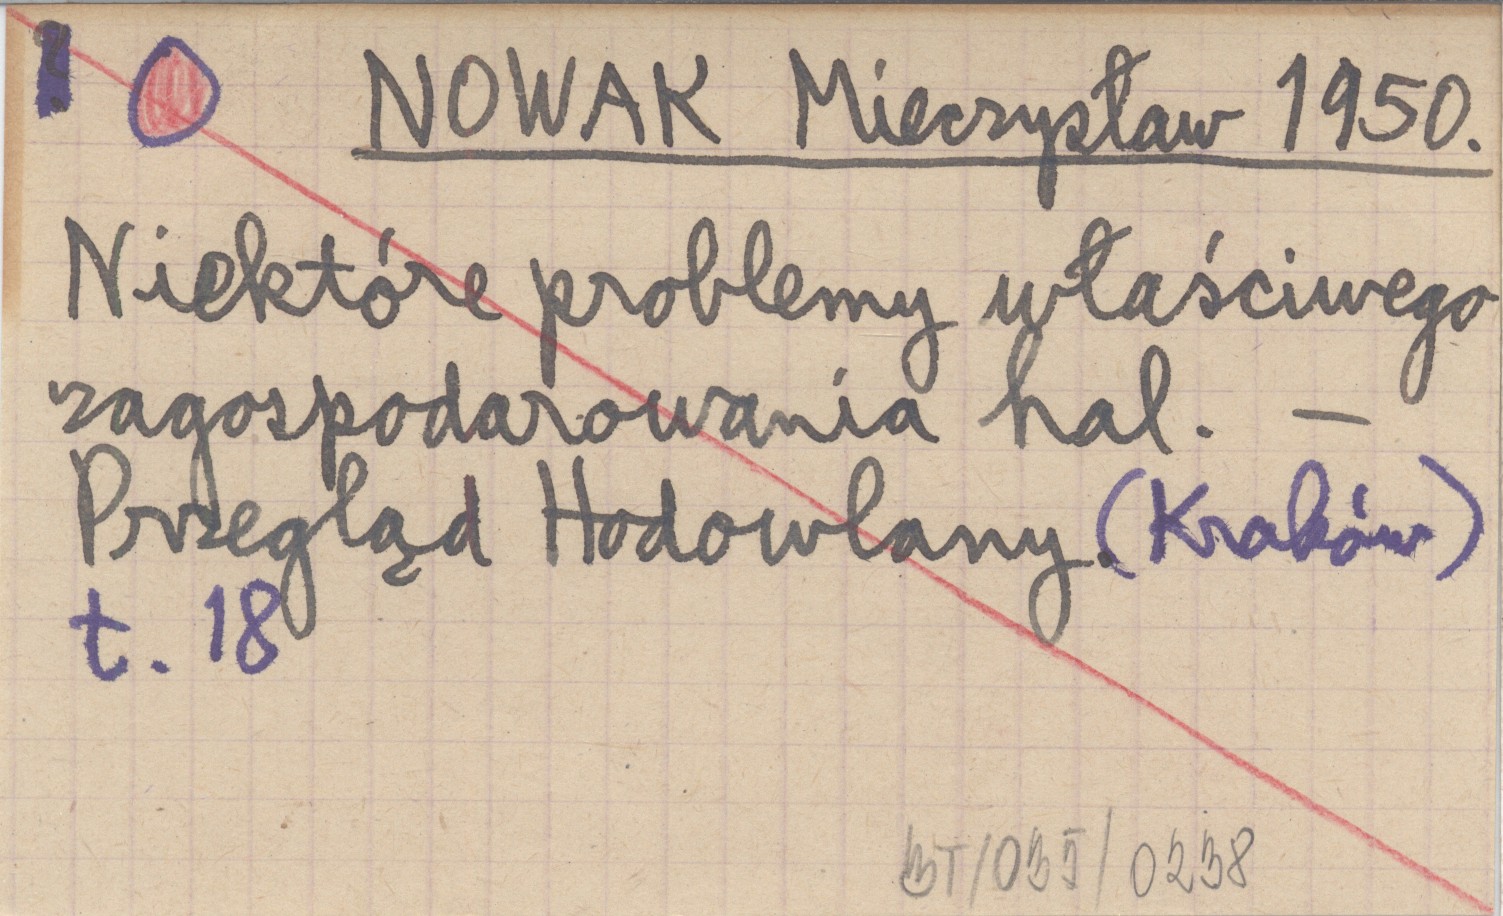 NOWAK Mieczysław 1950.
Niektóre problemy właściwego
zagospodarowania hal. —
Przegląd Hodowlany. (Kraków)
t. 18
BT/035/0238